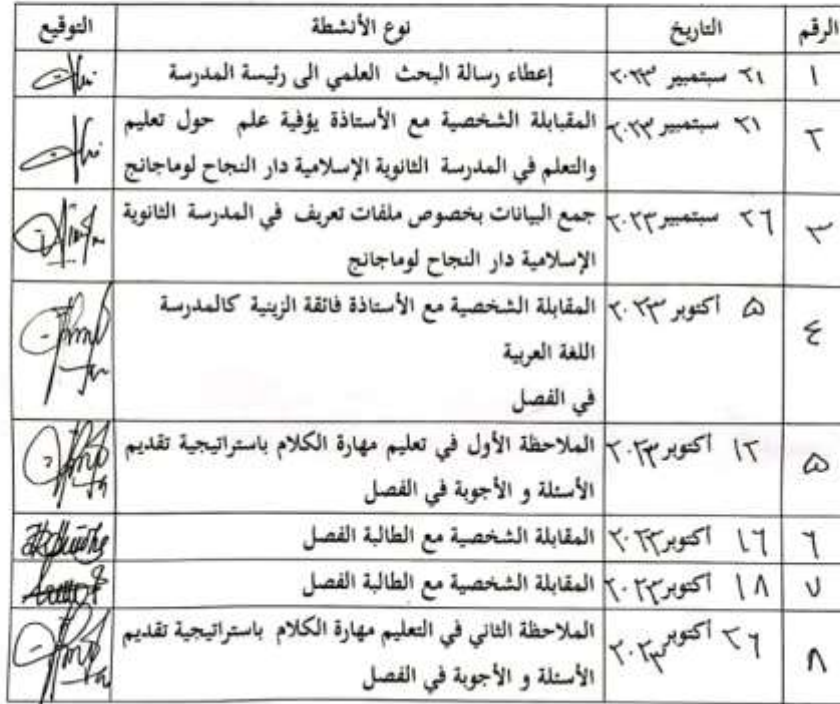 الرقم التاريخ نوع الأنشطة التوقيع
١ ٢١ سبتمبير ٢٠٢٣ إعطاء رسالة البحث العلمي الى رئيسة المدرسة
٢ ٢١ سبتمبير ٢٠٢٣ المقبابلة الشخصية مع الأستاذة يؤفية علم حول تعليم
والتعلم في المدرسة الثانوية الإسلامية دار النجاح لوماجانج
٣ ٢٦ سبتمبير ٢٠٢٣ جمع البيانات بخصوص ملفات تعريف في المدرسة الثانوية
الإسلامية دار النجاح لوماجانج
٤ ٥ أكتوبر ٢٠٢٣ المقابلة الشخصية مع الأستاذة فائقة الزينية كالمدرسة
اللغة العربية
في الفصل
٥ ١٢ أكتوبر ٢٠٢٣ الملاحظة الأول في تعليم مهارة الكلام باستراتيجية تقديم
الأسئلة و الأجوبة في الفصل
٦ ١٦ أكتوبر ٢٠٢٣ المقابلة الشخصية مع الطالبة الفصل
٧ ١٨ أكتوبر ٢٠٢٣ المقابلة الشخصية مع الطالبة الفصل
٨ ٢٦ أكتوبر ٢٠٢٣ الملاحظة الثاني في التعليم مهارة الكلام باستراتيجية تقديم
الأسئلة و الأجوبة في الفصل